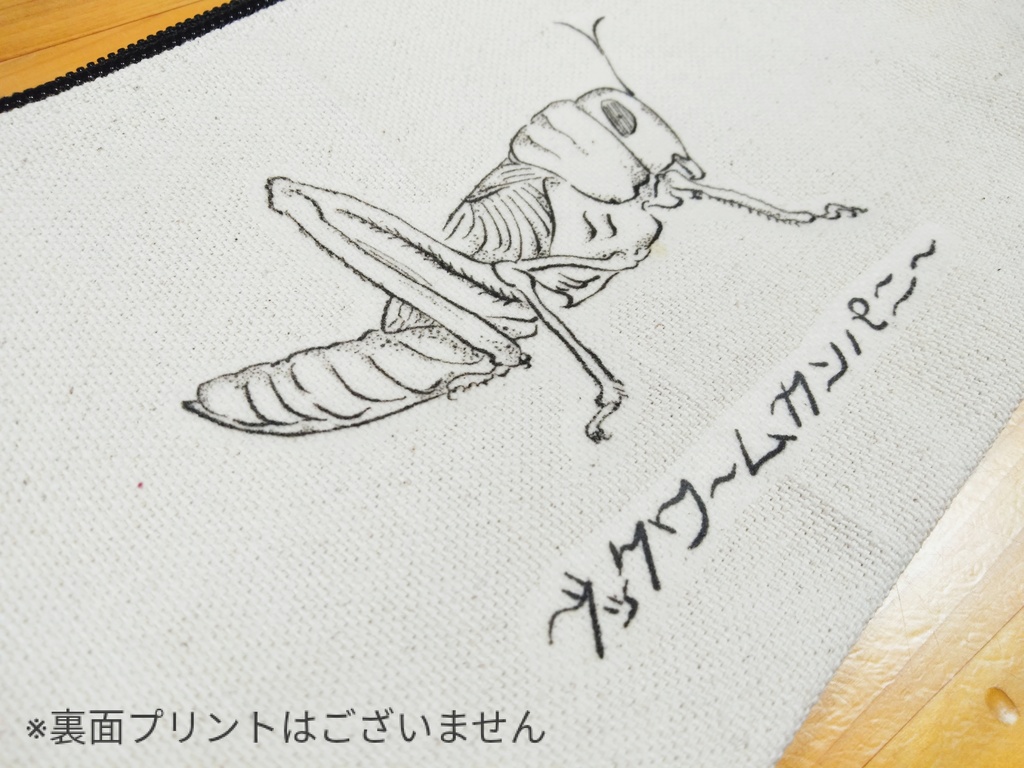 ブックワームカンパニー
※裏面プリントはございません